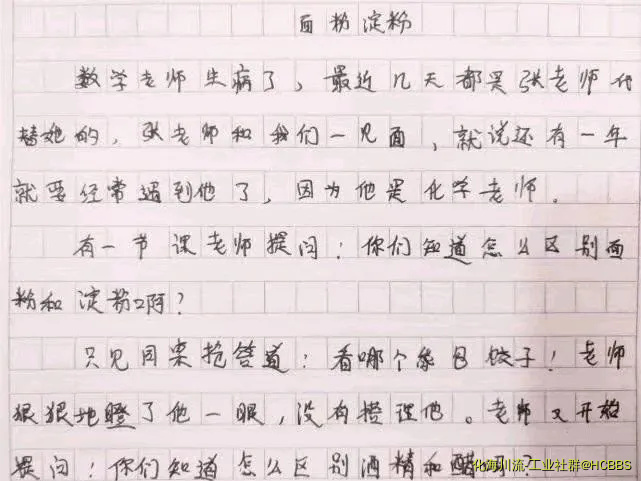 面粉淀粉
数学老师生病了,最近几天都是张老师代
替她的,张老师和我们一见面,就说还有一年
就要经常遇到他了,因为他是化学老师。
有一节课老师提问:你们知道怎么区别面
粉和淀粉啊?
只见同桌抢答道:看哪个能包饺子!老师
狠狠地瞪了他一眼,没有搭理他。老师又开始
提问:你们知道怎么区别酒精和醋吗?
化海川流-工业社群@HCBBS